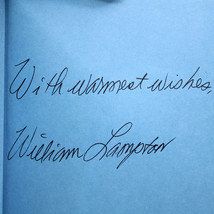 With warmest wishes,
William Langston